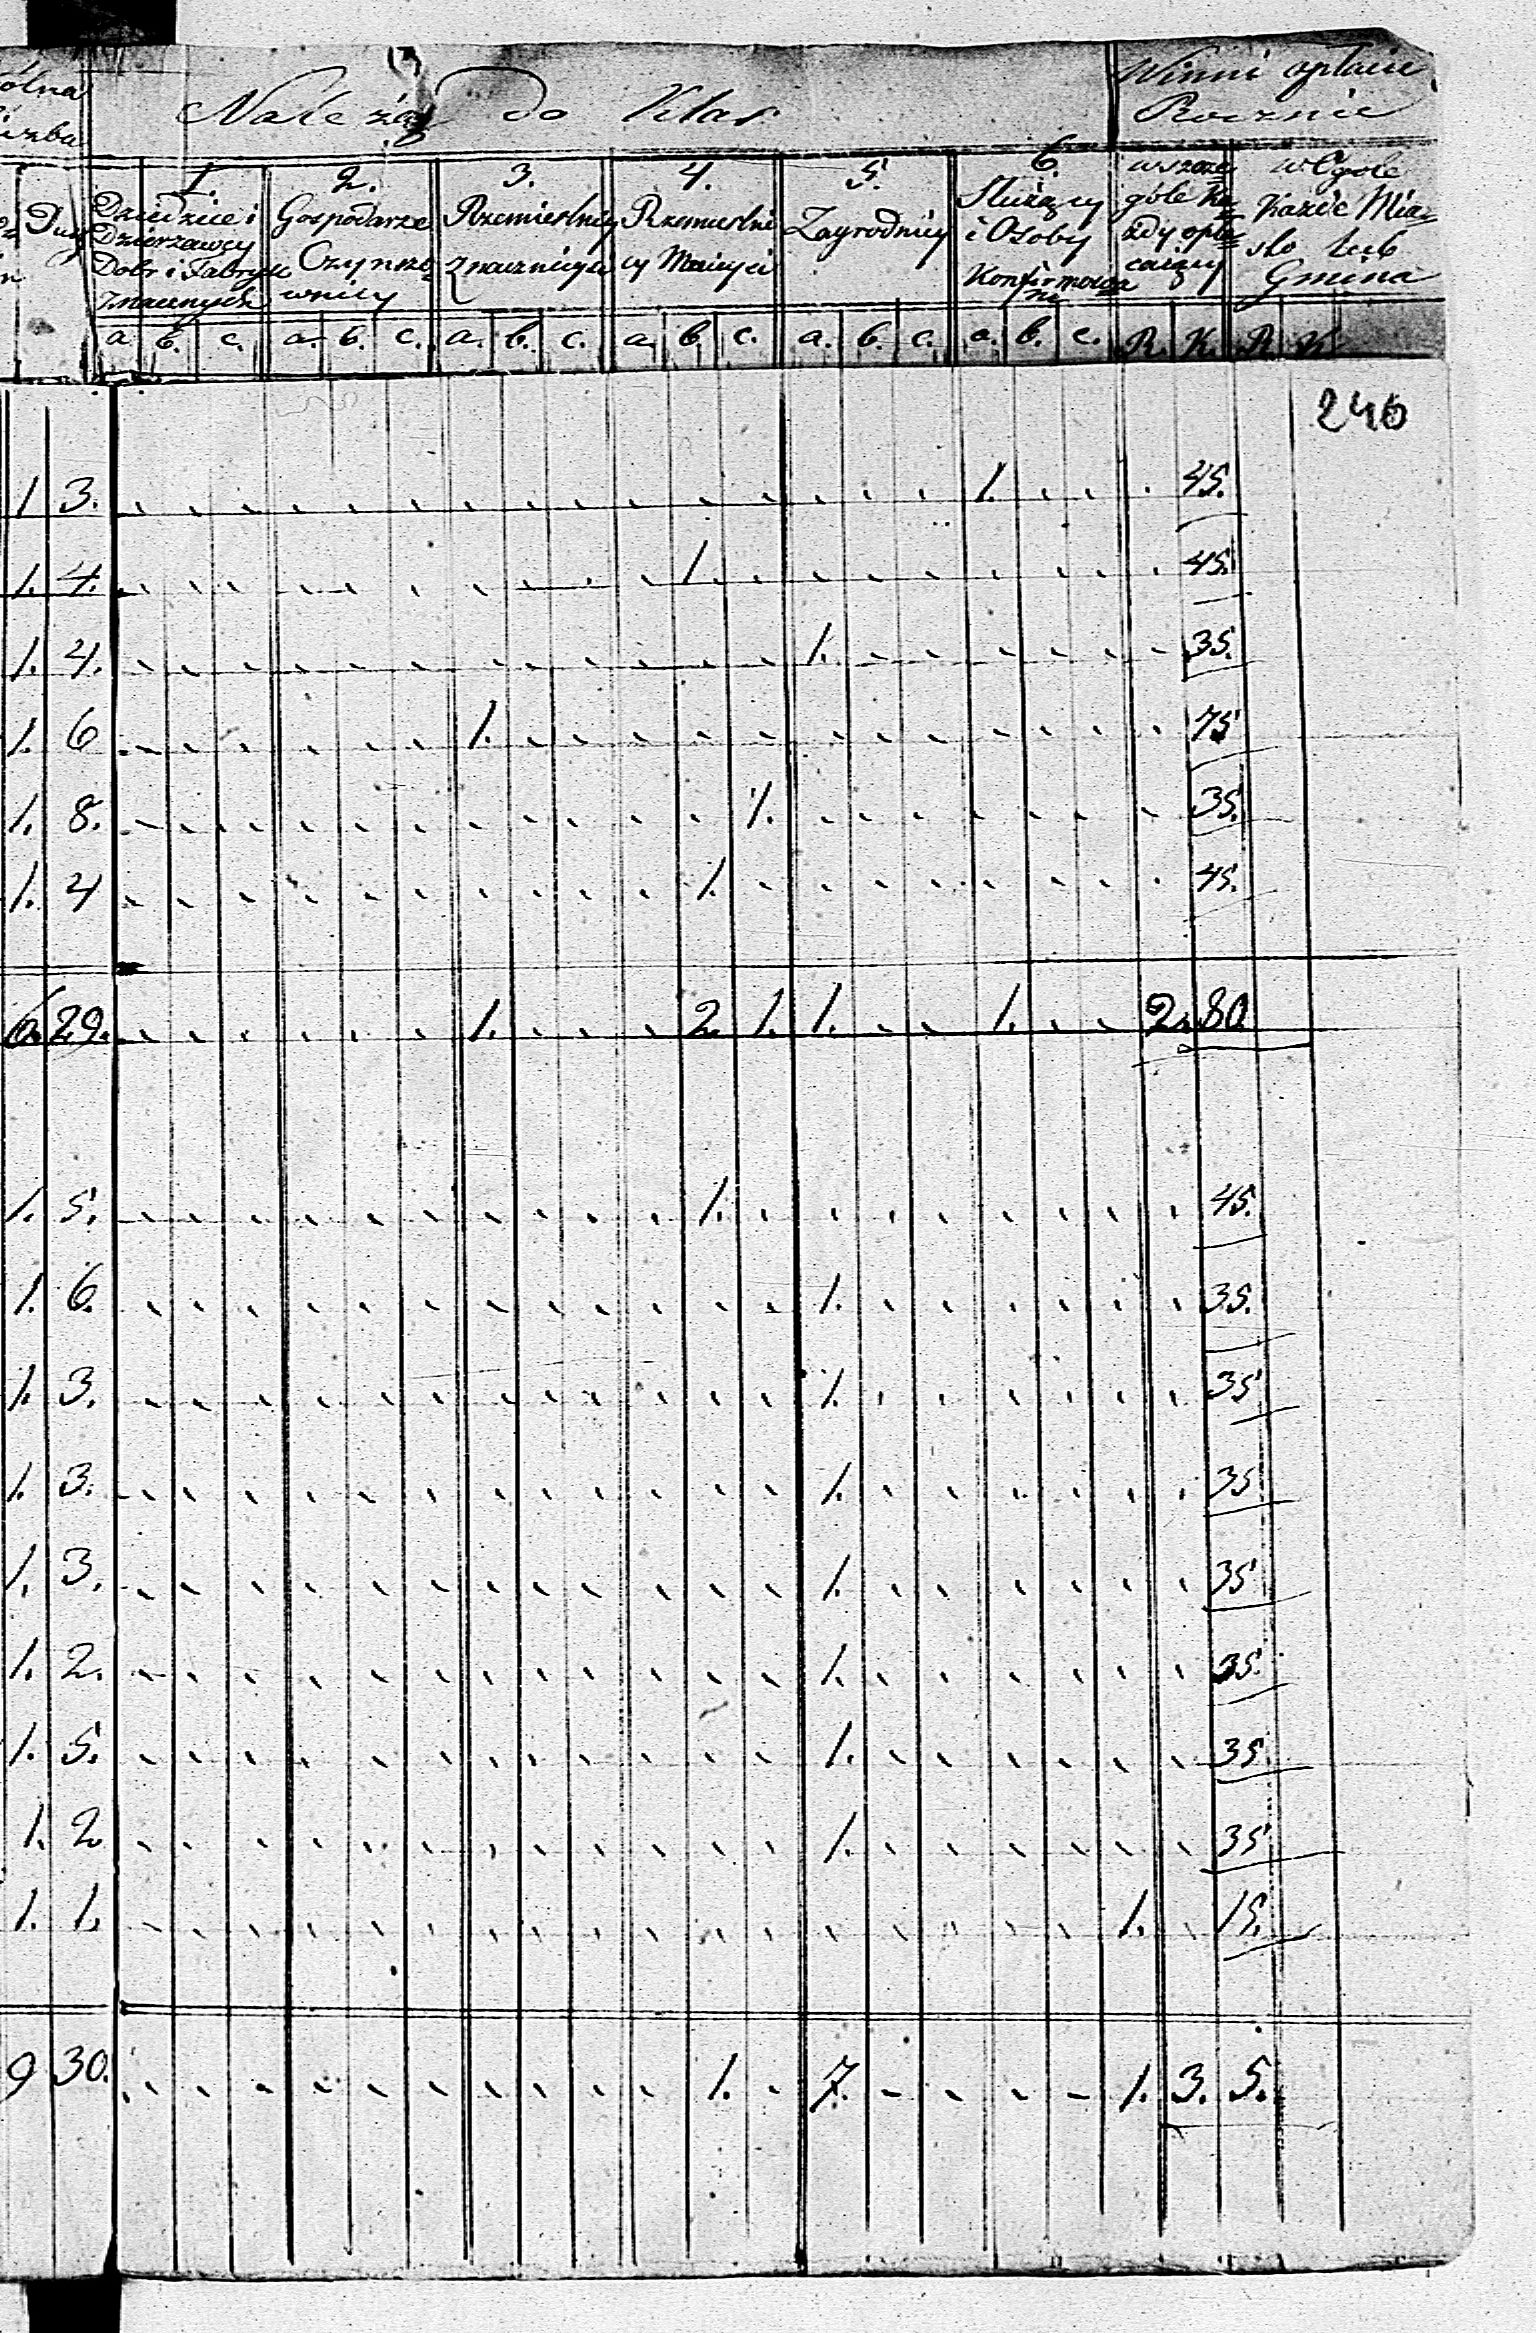 ólna Należą do Klas Winni opłacić
iczba Rocznie
1. 2. 3. 4. 5. 6. w szcze w Ogóle
Dusz Dziedzice i Gospodarze Rzemieślnicy Rzemieślni Zagrodnicy Służący góle Ka każde Mia=
Dzierżawcy Czynszo= znaczniejsi cy Mniejsi i Osoby żdy opła= sto lub
Dobr i Fabryk wnicy Konfirmowa cający Gmina
znacznych ne
a b. c. a. b. c. a. b. c. a. b. c. a. b. c. a. b. c. R. K. R. K.
246
1 3. 1. 45.
1. 4. 1. 45.
1. 4. 1. 35.
1. 6 1. 75
1. 8. 1. 35.
1. 4 1. 45.
6. 29. 1. 2 1. 1. 1. 2. 80
1. 5. 1. 45.
1. 6. 1. 35.
1. 3. 1. 35
1. 3. 1. 35
1. 3. 1. 35
1. 2. 1. 35.
1. 5. 1. 35
1. 2 1. 35
1. 1. 1. 15.
9 30. 1. 7. 1. 3. 5.